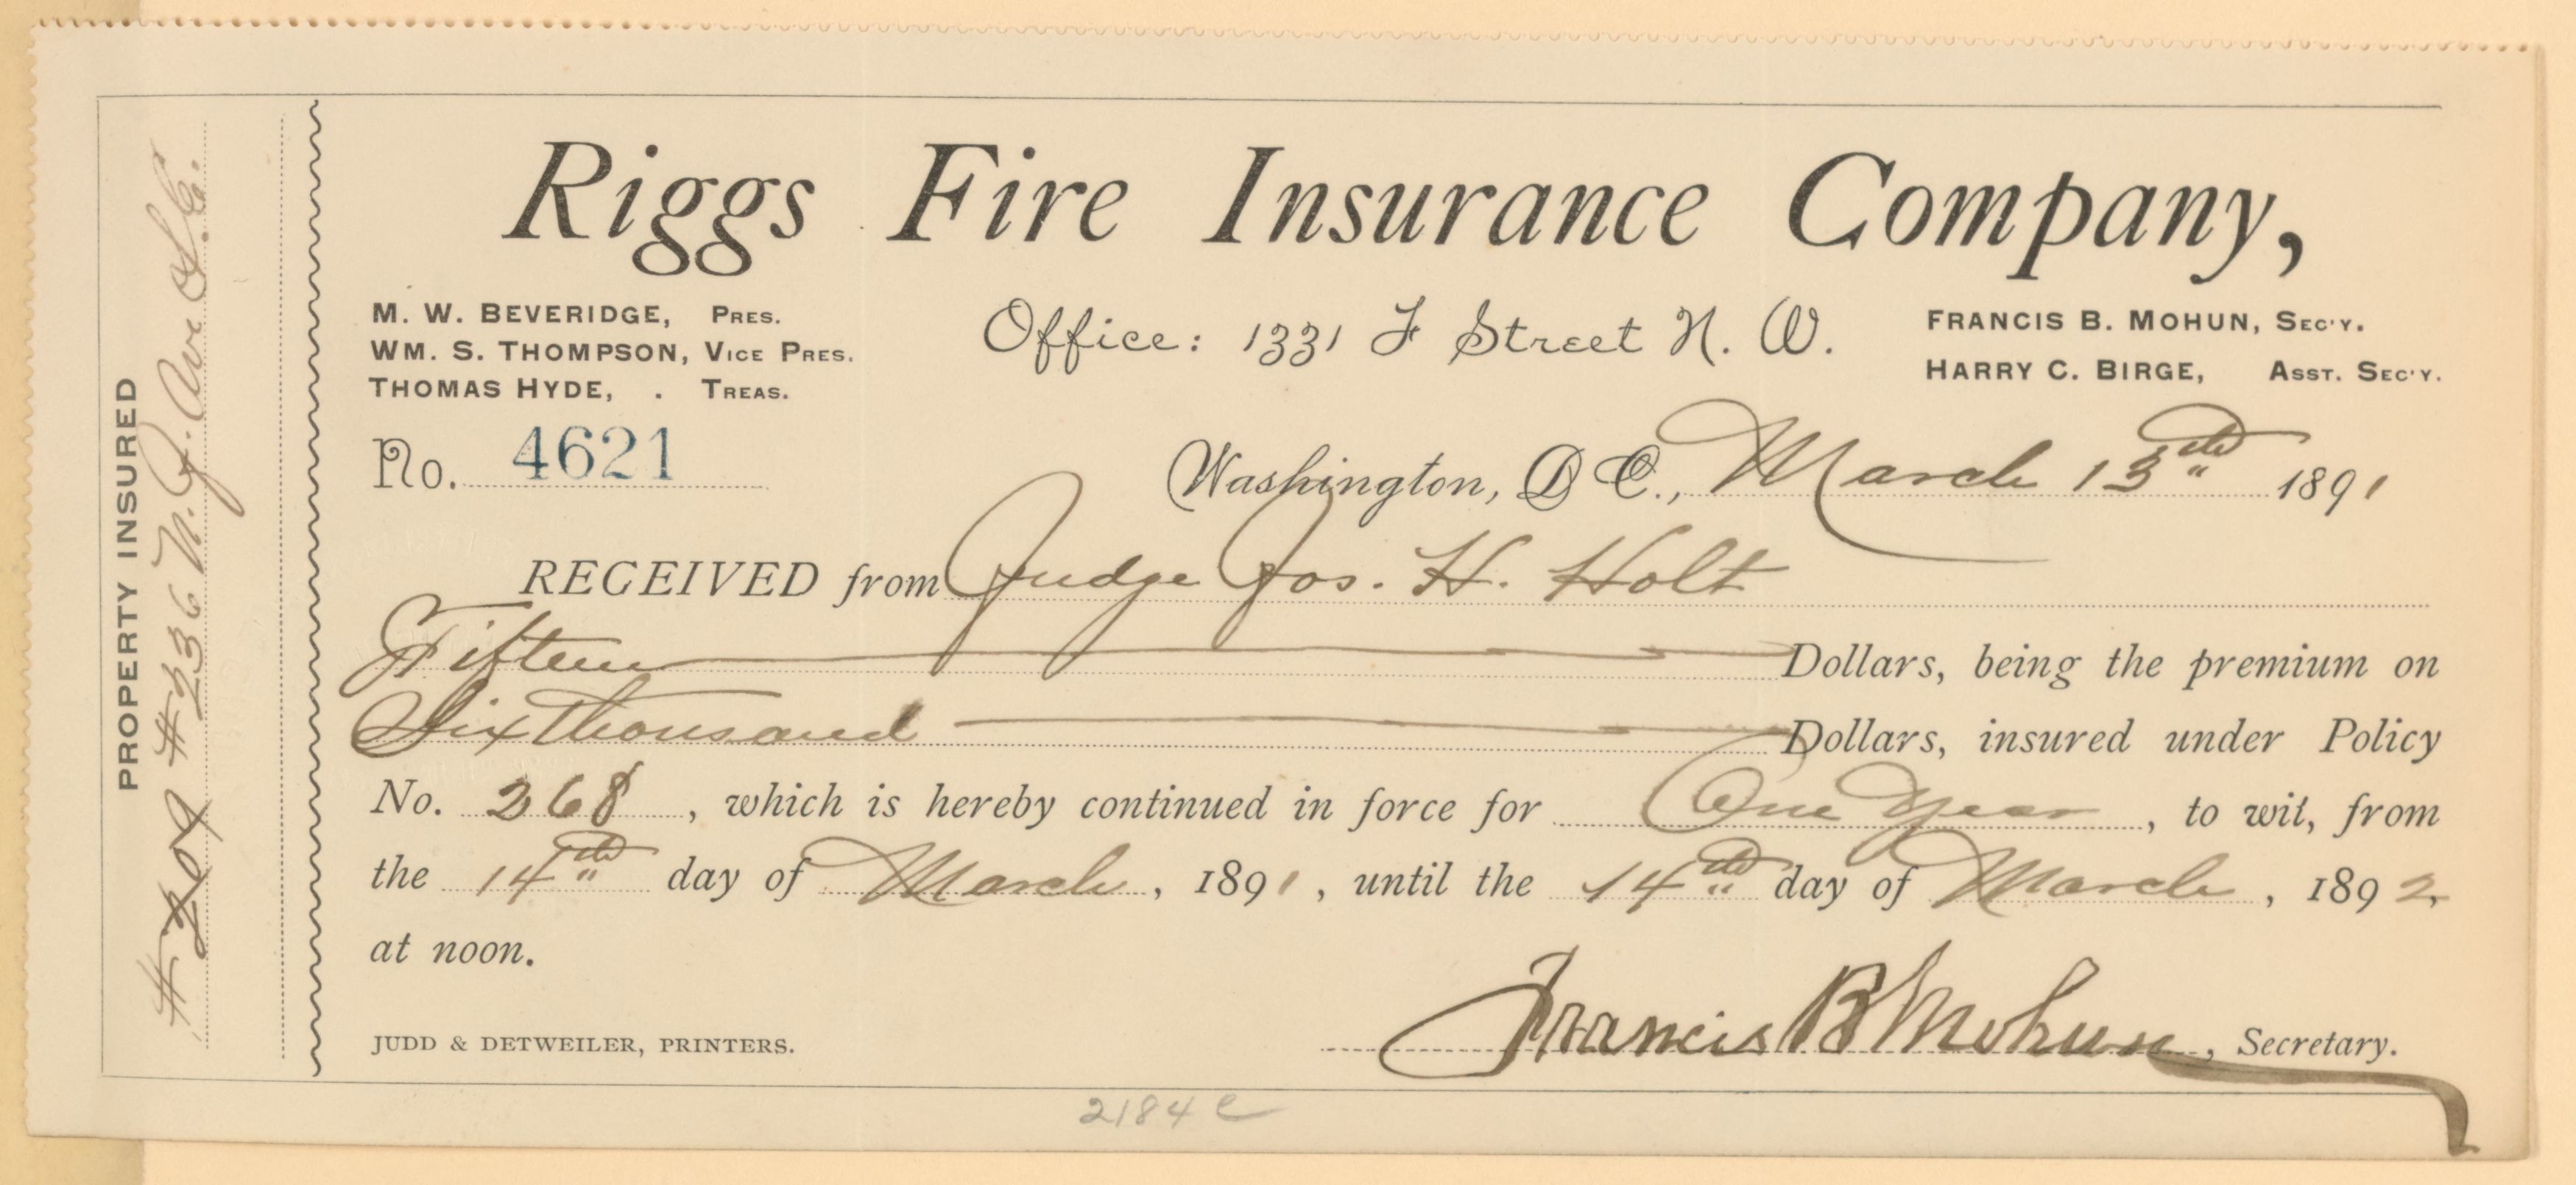 PROPERTY INSURED
# 209 # 236 N. J. Ave S. E.
Riggs Fire Insurance Company,
M. W. BEVERIDGE, PRES.
WM. S. THOMPSON, VICE PRES.
THOMAS HYDE, . TREAS.
Office: 1331 F Street N. W.
FRANCIS B. MOHUN, SEC'Y.
HARRY C. BIRGE, ASST. SEC'Y.
No. 4621
Washington, D C., March 13th 1891
RECEIVED from Judge Jos. H. Holt
Fifteen Dollars, being the premium on
Six Thousand Dollars, insured under Policy
No. 268, which is hereby continued in force for One Year, to wit, from
the 14th day of March, 1891, until the 14th day of March, 1892,
at noon.
Francis B Mohun, Secretary.
JUDD & DETWEILER, PRINTERS.
2184 e